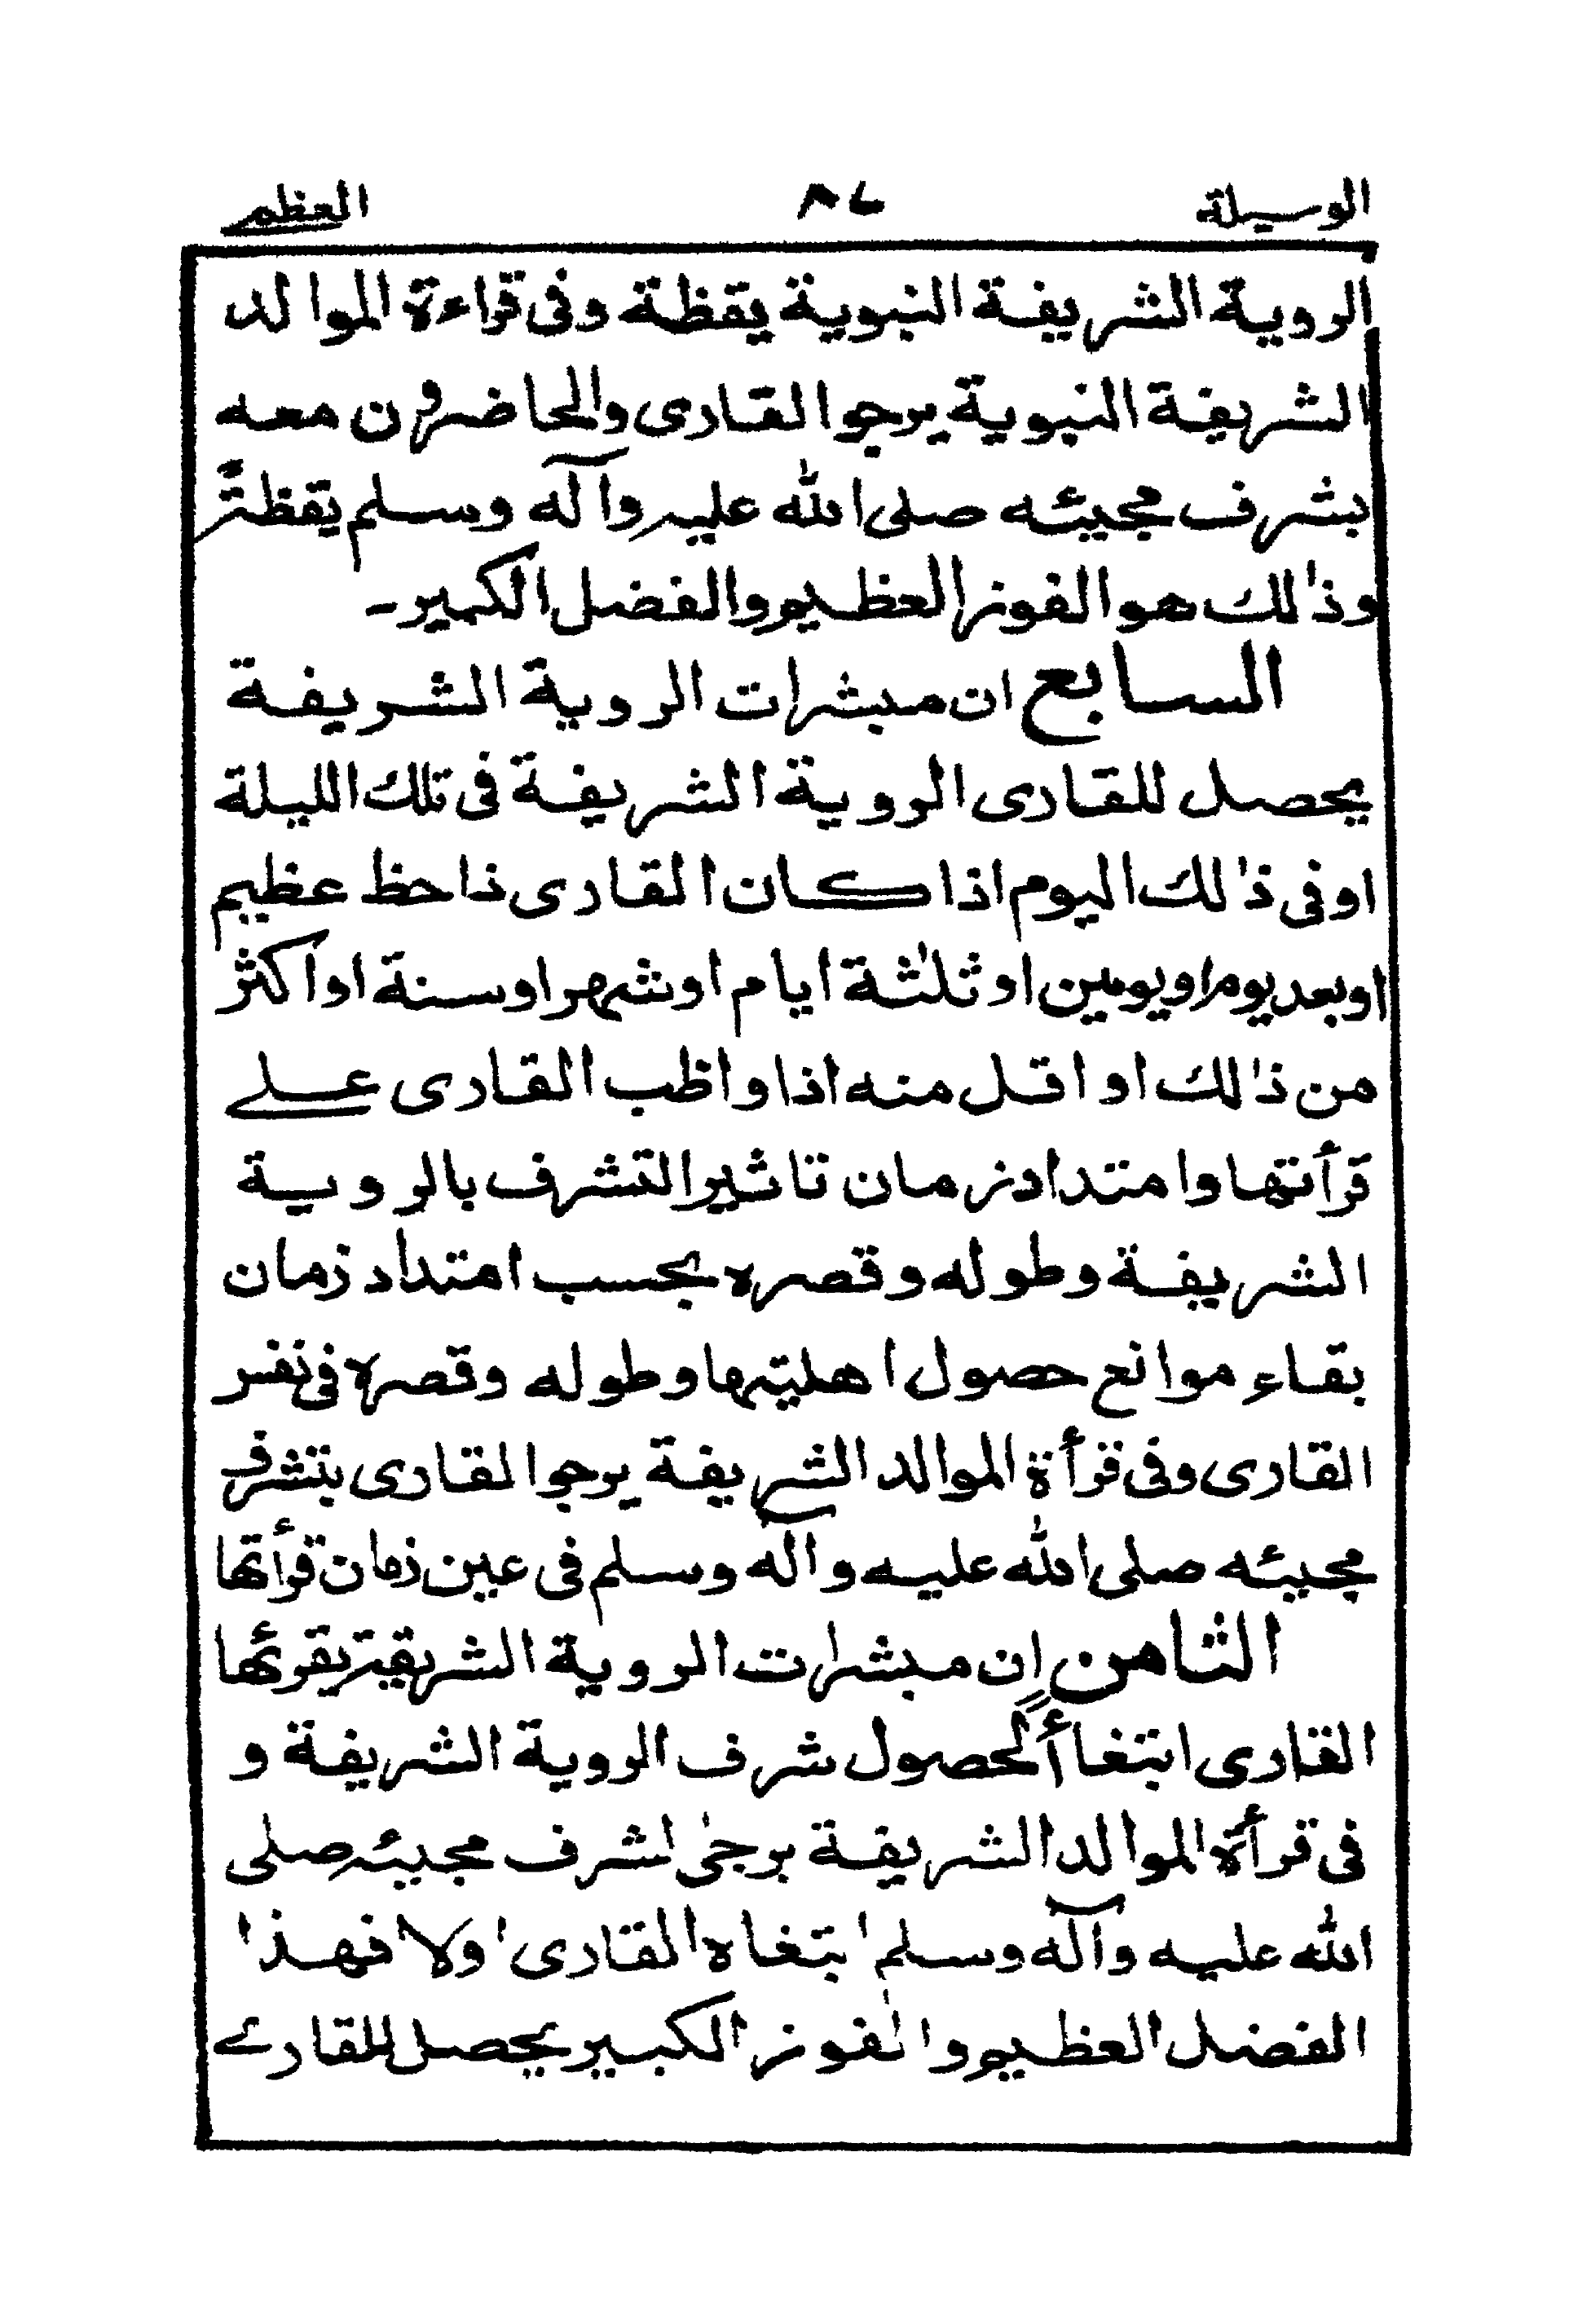 الوسيلة ٨٦ العظمے
الروية الشريفة النبوية يقظة وفى قراءة الموالد
الشريفة النبوية يرجو القارى والحاضرون معه
بشرف مجيئه صلى الله عليه وآله وسلم يقظةً
وذٰلك هو الفوز العظيم والفضل الكبير۔
السابع ان مبشرات الروية الشريفة
يحصل للقارى الروية الشريفة فى تلك الليلة
او فى ذٰلك اليوم اذا كان القارى ذا حظ عظيم
او بعد يوم او يومين او ثلٰثة ايام او شهر او سنة او اكثر
من ذٰلك او اقل منه اذا واظب القارى علے
قرأتها وامتداد زمان تاثير التشرف بالروية
الشريفة وطوله وقصره بحسب امتداد زمان
بقاء موانع حصول اهليتها وطوله وقصره فى نفس
القارى وفى قرأة الموالد الشريفة يرجو القارى بتشرف
مجيئه صلى الله عليه وآله وسلم فى عين زمان قرأتها
الثامن ان مبشرات الروية الشريفة يقرئها
القارى ابتغاأً لحصول شرف الروية الشريفة و
فى قرأة الموالد الشريفة يرجىٰ لشرف مجيئه صلى
الله عليه وآله وسلم ابتغاه القارى اولا فهذا
الفضل العظيم والفوز الكبير يحصل للقارے